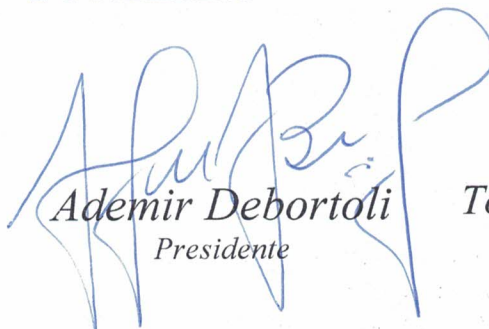 Ademir Debortoli
Presidente